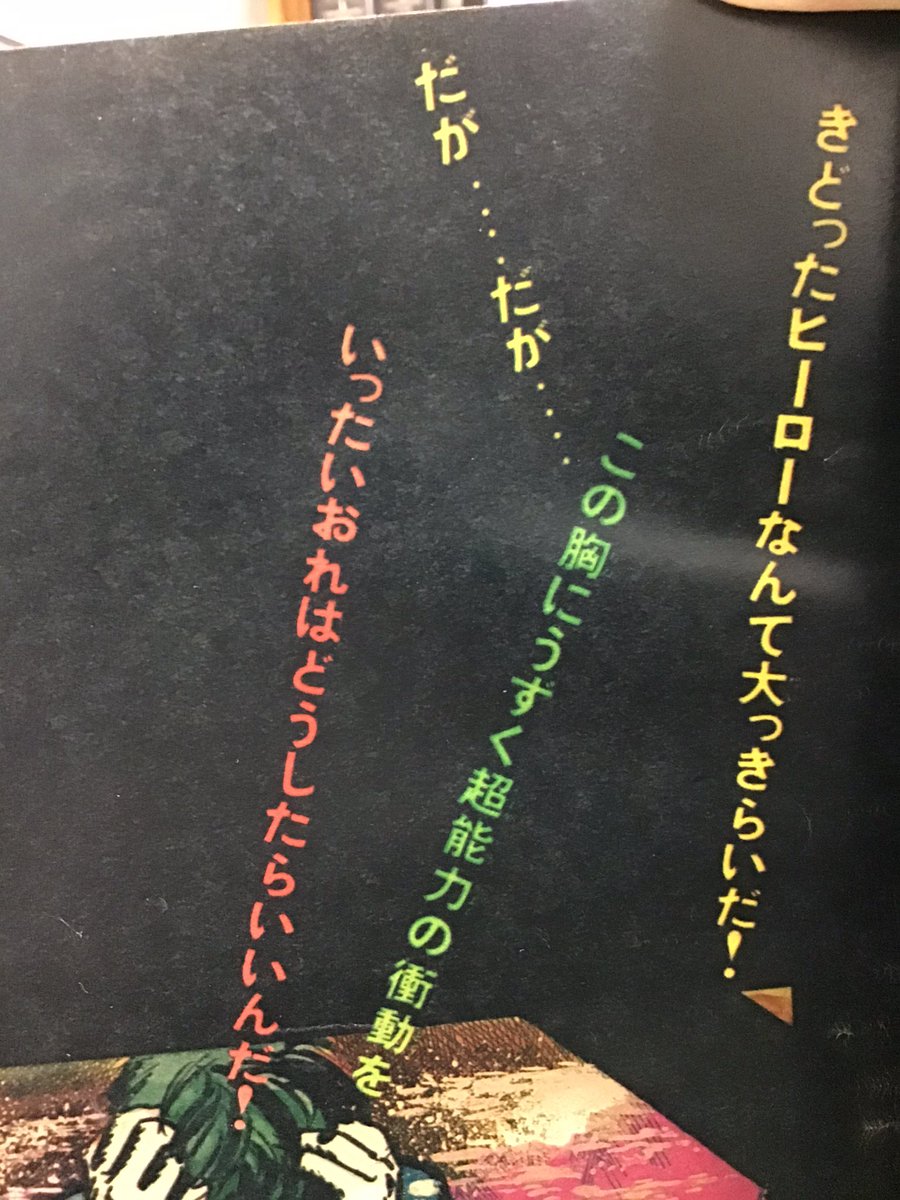 きどったヒーローなんて大っきらいだ!
だが....だが....
この胸にうずく超能力の衝動を
いったいおれはどうしたらいいんだ!